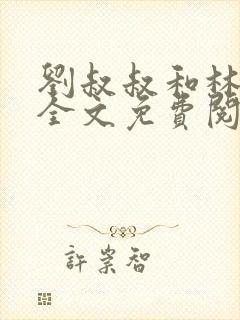 劉叔叔和林
全文免費閱
許崇智